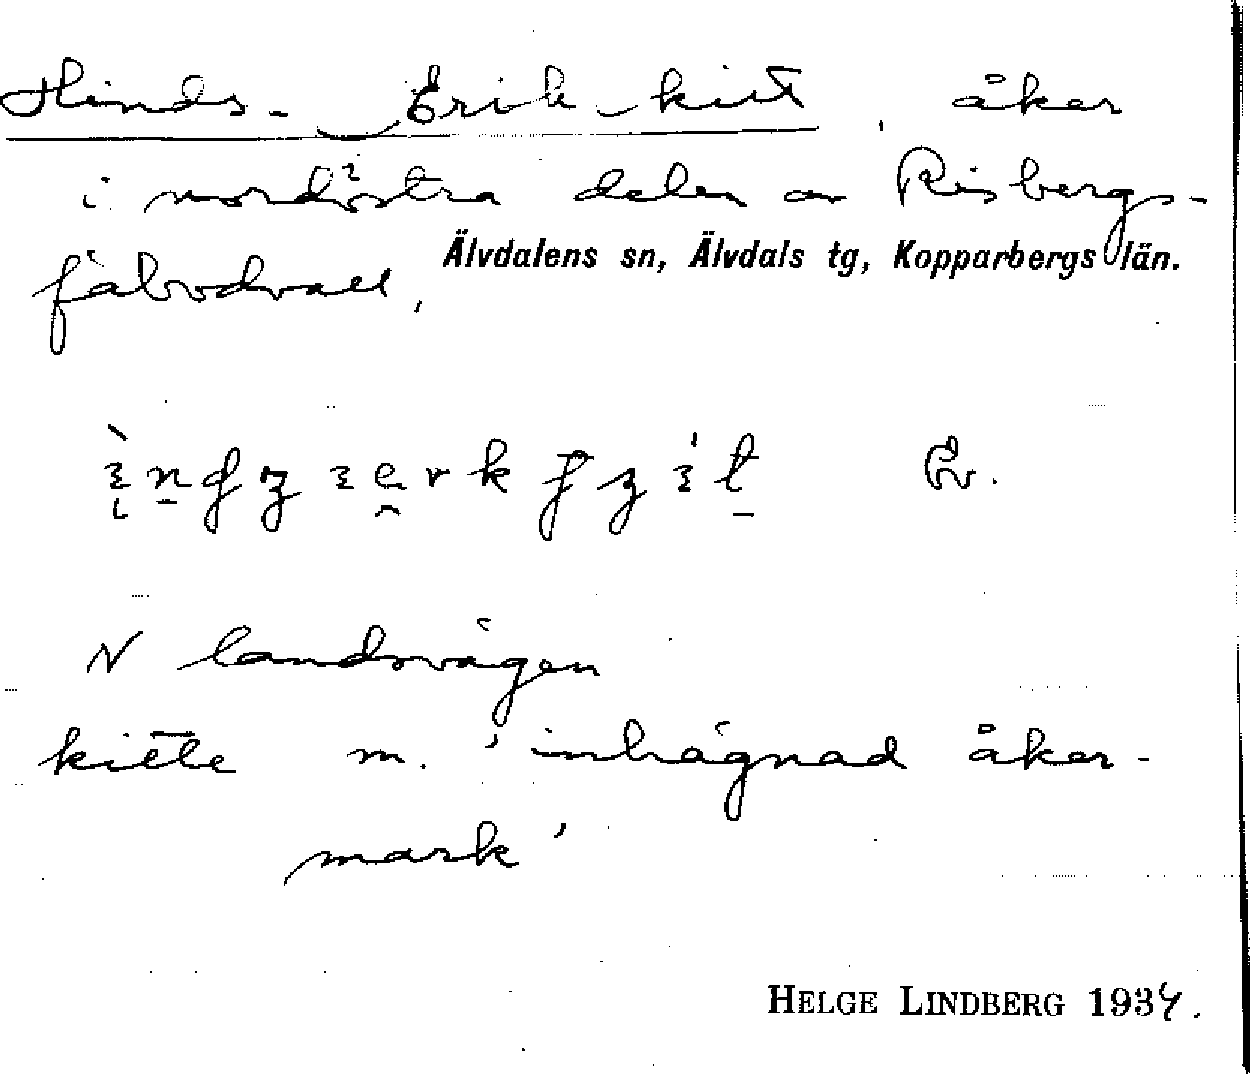 Hinds-Erik-kitt, åker
i nordöstra delen av Risbergs-
fäbodvall,
Älvdalens sn, Älvdals tg, Kopparbergs län.
N landsvägen
kitte m. 'inhägnad åker-
mark'
HELGE LINDBERG 1934.